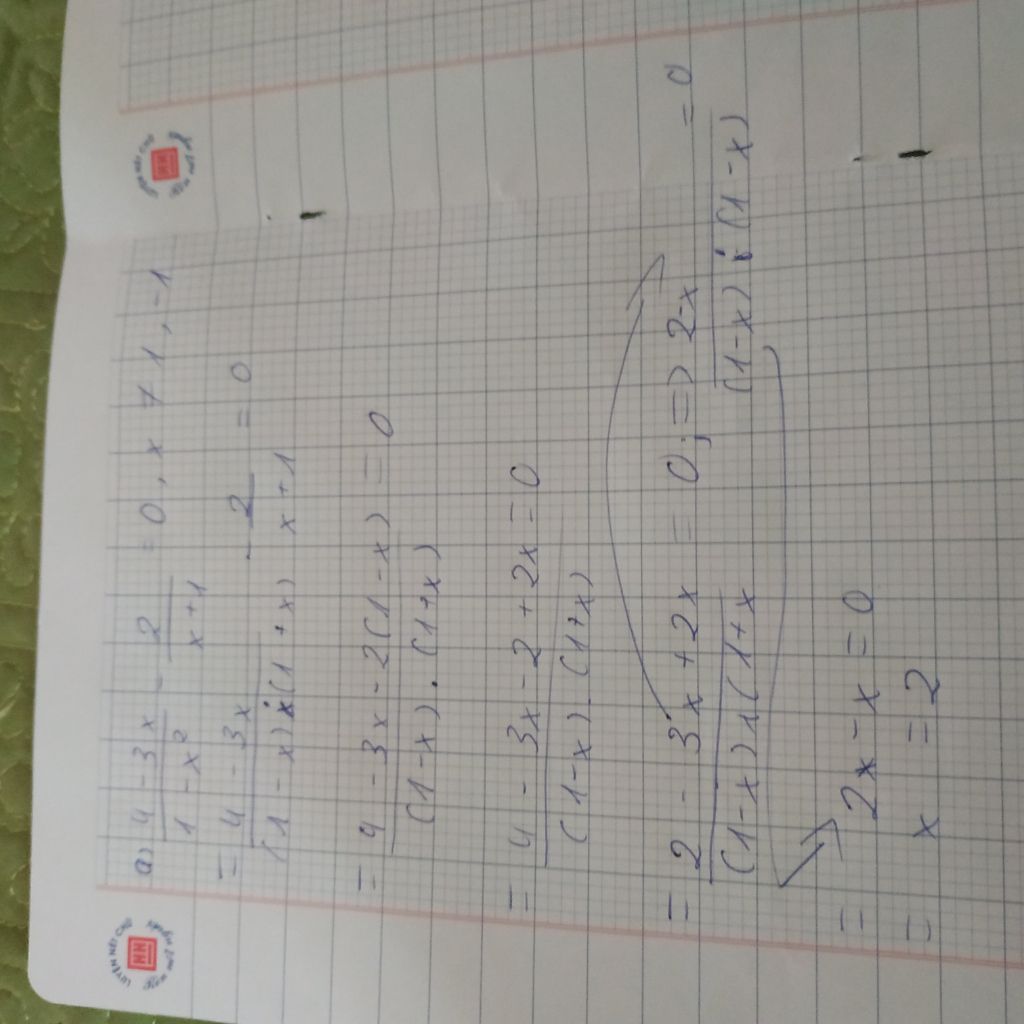 a) \frac{4-3x}{1-x²} - \frac{2}{x+1} = 0, x ≠ 1, -1
= \frac{4-3x}{(1-x).(1+x)} - \frac{2}{x+1} = 0
= \frac{4-3x-2(1-x)}{(1-x).(1+x)} = 0
= \frac{4-3x-2+2x}{(1-x).(1+x)} = 0
= \frac{2-3x+2x}{(1-x)x(1+x} = 0; => \frac{2-x}{(1-x).(1-x)} = 0
= 2x-x = 0
= x = 2
LUYỆN NÉT CHỮ
HN
LUYỆN NÉT CHỮ
HN